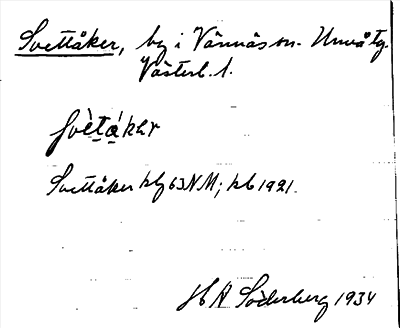 Svettåker, by i Vännäs sn. Umeå tg.
Västerb. l.
Svètákər
Svettåker hbg 63 NM; kb 1921.
H A Söderberg 1934